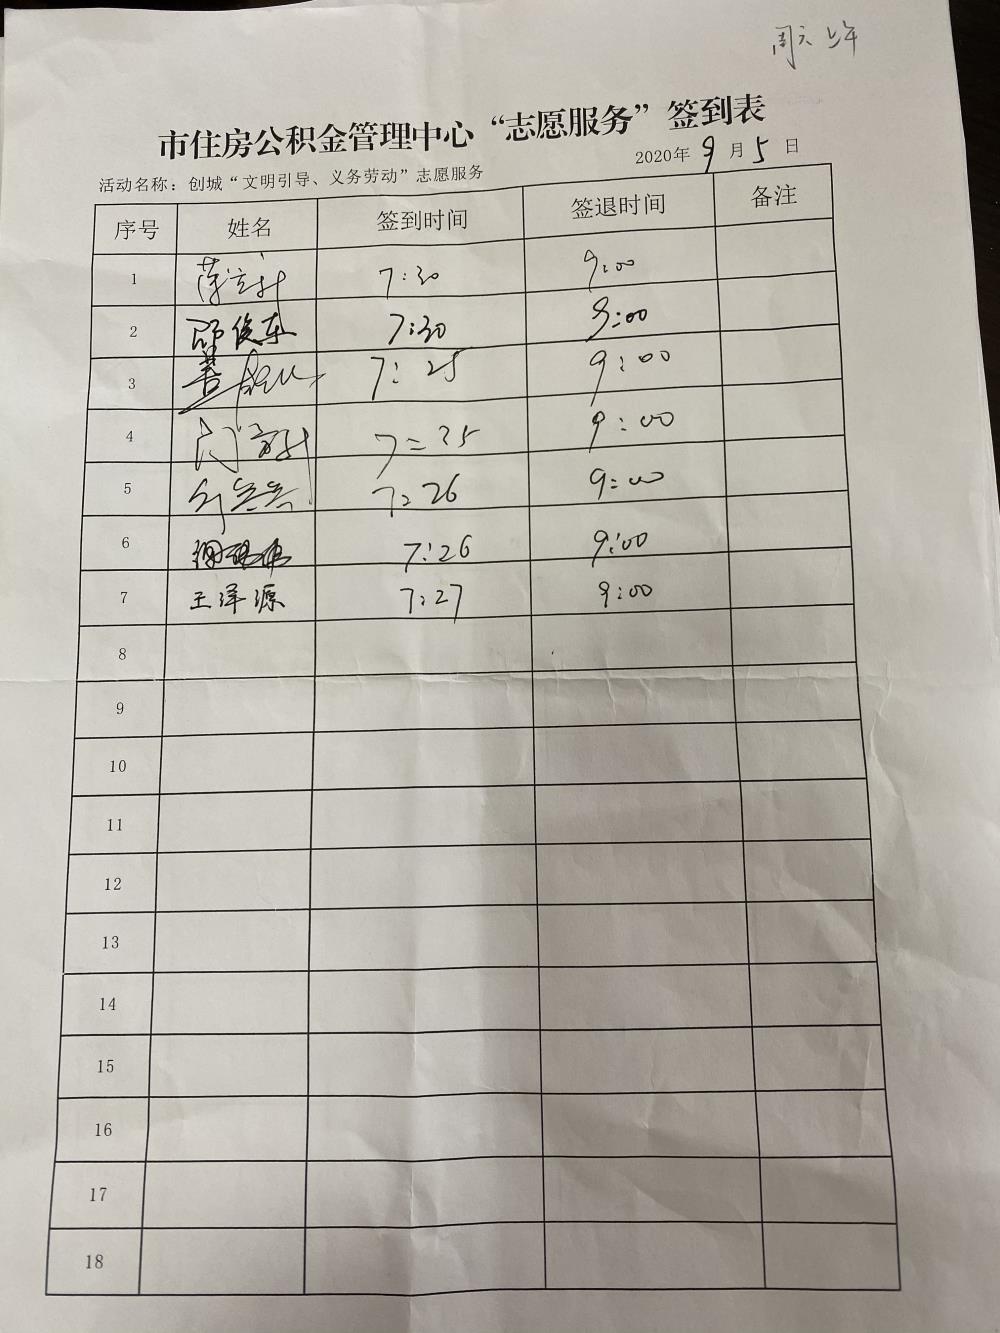 周六上午
市住房公积金管理中心“志愿服务”签到表
2020年9月5日
活动名称：创城“文明引导、义务劳动”志愿服务
序号 姓名 签到时间 签退时间 备注
1 7:30 9:00
2 邵俊东 7:30 9:00
3 7:25 9:00
4 7:25 9:00
5 7:26 9:00
6 7:26 9:00
7 王泽源 7:27 9:00
8
9
10
11
12
13
14
15
16
17
18